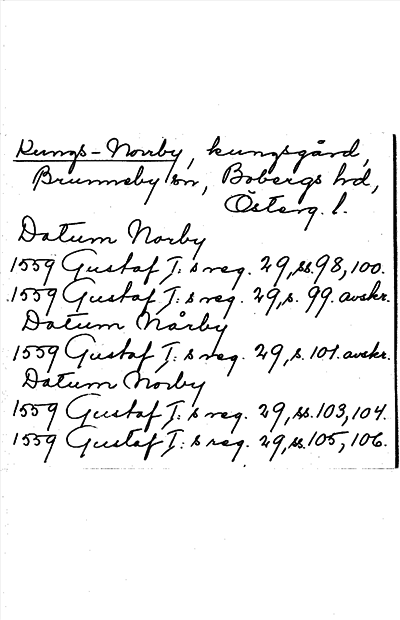 Kungs-Norrby, kungsgård,
Brunneby sn, Bobergs hd,
Österg. l.
Datum Norby
1559 Gustaf I: s reg. 29, ss. 98, 100.
1559 Gustaf I: s reg. 29, s. 99. avskr.
Datum Nårby
1559 Gustaf I: s reg. 29, s. 101. avskr.
Datum Norby
1559 Gustaf I: s reg. 29, ss. 103, 104.
1559 Gustaf I: s reg. 29, ss. 105, 106.